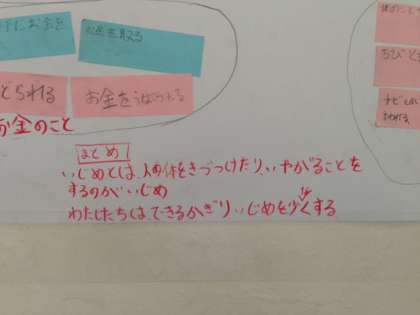 お金を
お金を取る
とられる
お金をうばわれる
お金のこと
まとめ
いじめとは、人の体をきづつけたり、いやがることを
するのがいじめ
わたしたちはできるかぎりいじめを少くする